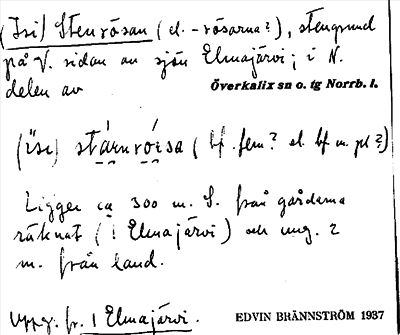 (Isi) Stenrösan (el. -rösarna?), stengrund
på V. sidan av sjön Elmajärvi; i N.
delen av Överkalix sn o. tg Norrb. l.
(ïsı) stárnrǿısa (bf. fem? el. bf m. pl?)
Ligger ca 300 m. S. från gårdarna
räknat (i Elmajärvi) och ung. 2
m. från land.
Uppg. fr. 1 Elmajärvi. EDVIN BRÄNNSTRÖM 1937